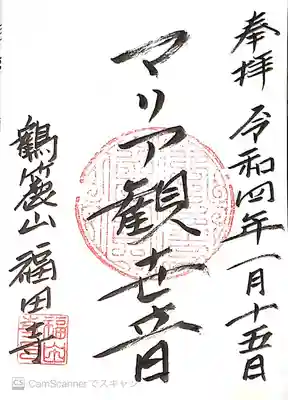 奉拝 令和四年一月十五日
マリア観世音
鶴篭山 福田寺
CS CamScannerでスキャン